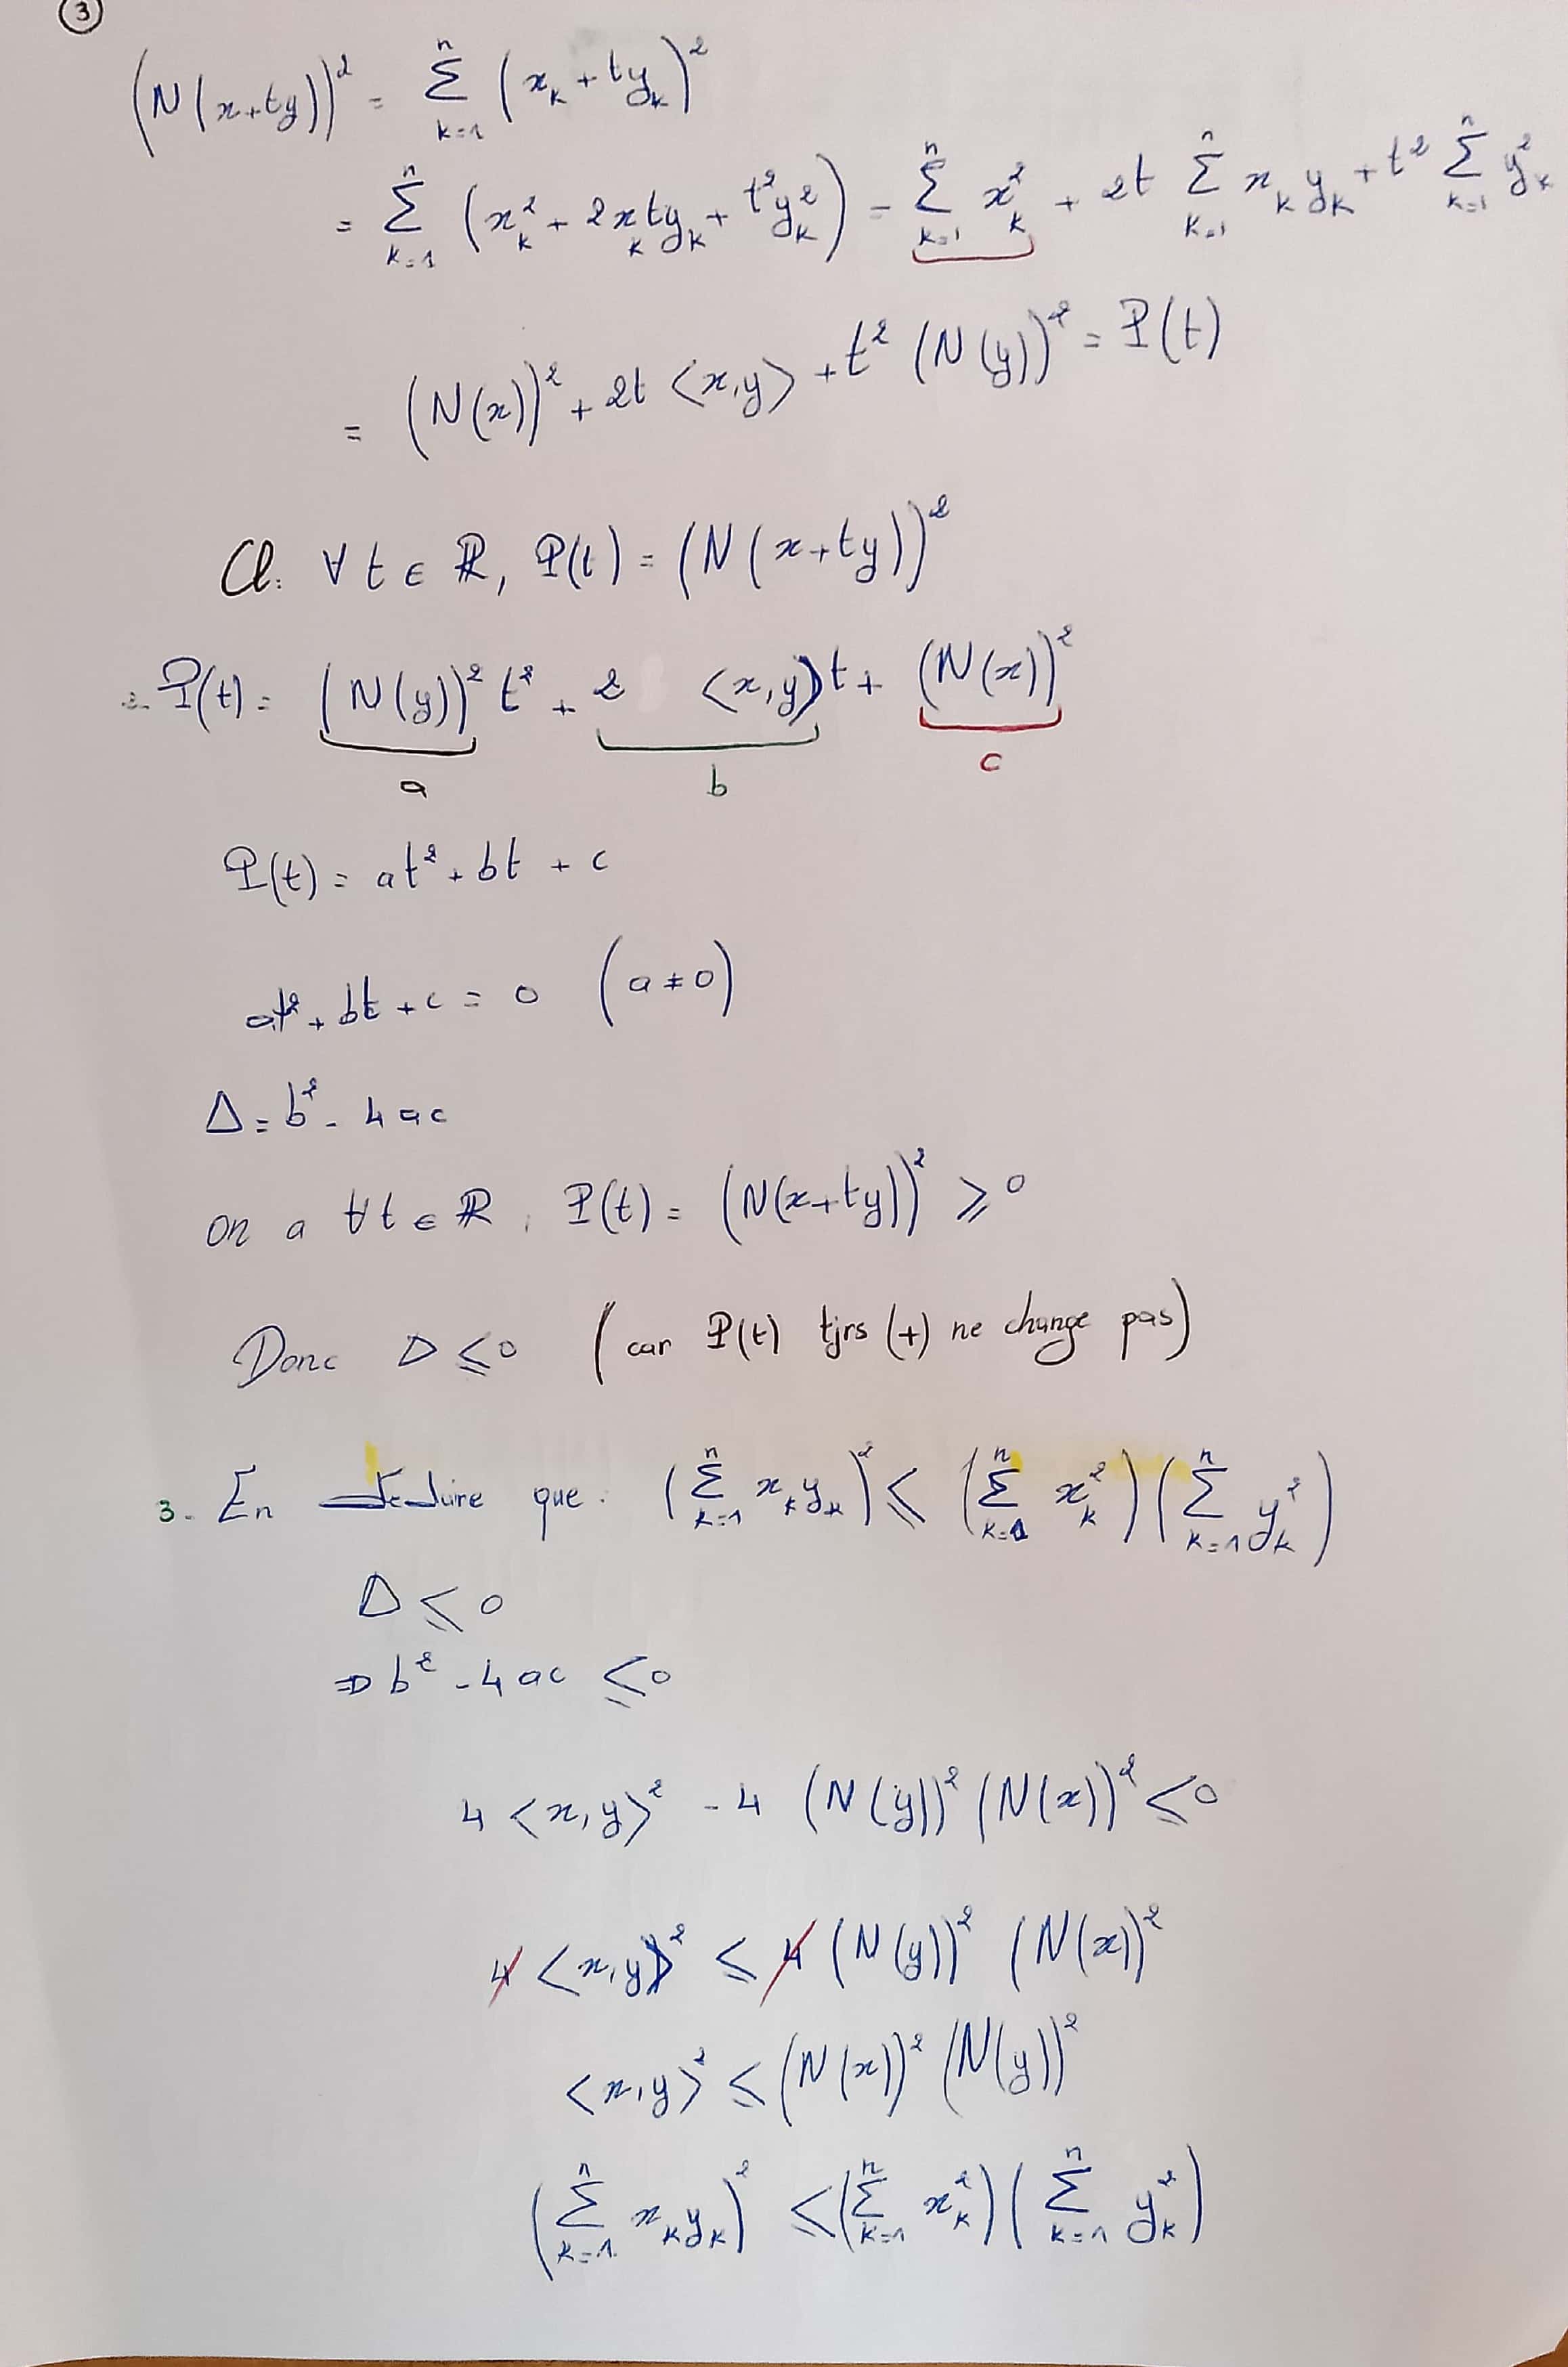 ③
(N(x+ty))² = ∑_{k=1}^{n} (x_k + ty_k)²
= ∑_{k=1}^{n} (x_k² + 2x_k ty_k + t²y_k²) = ∑_{k=1}^{n} x_k² + 2t ∑_{k=1}^{n} x_k y_k + t² ∑_{k=1}^{n} y_k²
= (N(x))² + 2t <x,y> + t² (N(y))² = P(t)
Cl: ∀ t ∈ ℝ, P(t) = (N(x+ty))²
2. P(t) = (N(y))² t² + 2 <x,y> t + (N(x))²
a b c
P(t) = at² + bt + c
at² + bt + c = 0 (a ≠ 0)
Δ = b² - 4ac
on a ∀ t ∈ ℝ, P(t) = (N(x+ty))² ⩾ 0
Donc Δ ⩽ 0 (car P(t) tjrs (+) ne change pas)
3. En deduire que: (∑_{k=1}^{n} x_k y_k)² ⩽ (∑_{k=1}^{n} x_k²)(∑_{k=1}^{n} y_k²)
Δ ⩽ 0
⇒ b² - 4ac ⩽ 0
4 <x,y>² - 4 (N(y))² (N(x))² ⩽ 0
4 <x,y>² ⩽ 4 (N(y))² (N(x))²
<x,y>² ⩽ (N(x))² (N(y))²
(∑_{k=1}^{n} x_k y_k)² ⩽ (∑_{k=1}^{n} x_k²)(∑_{k=1}^{n} y_k²)